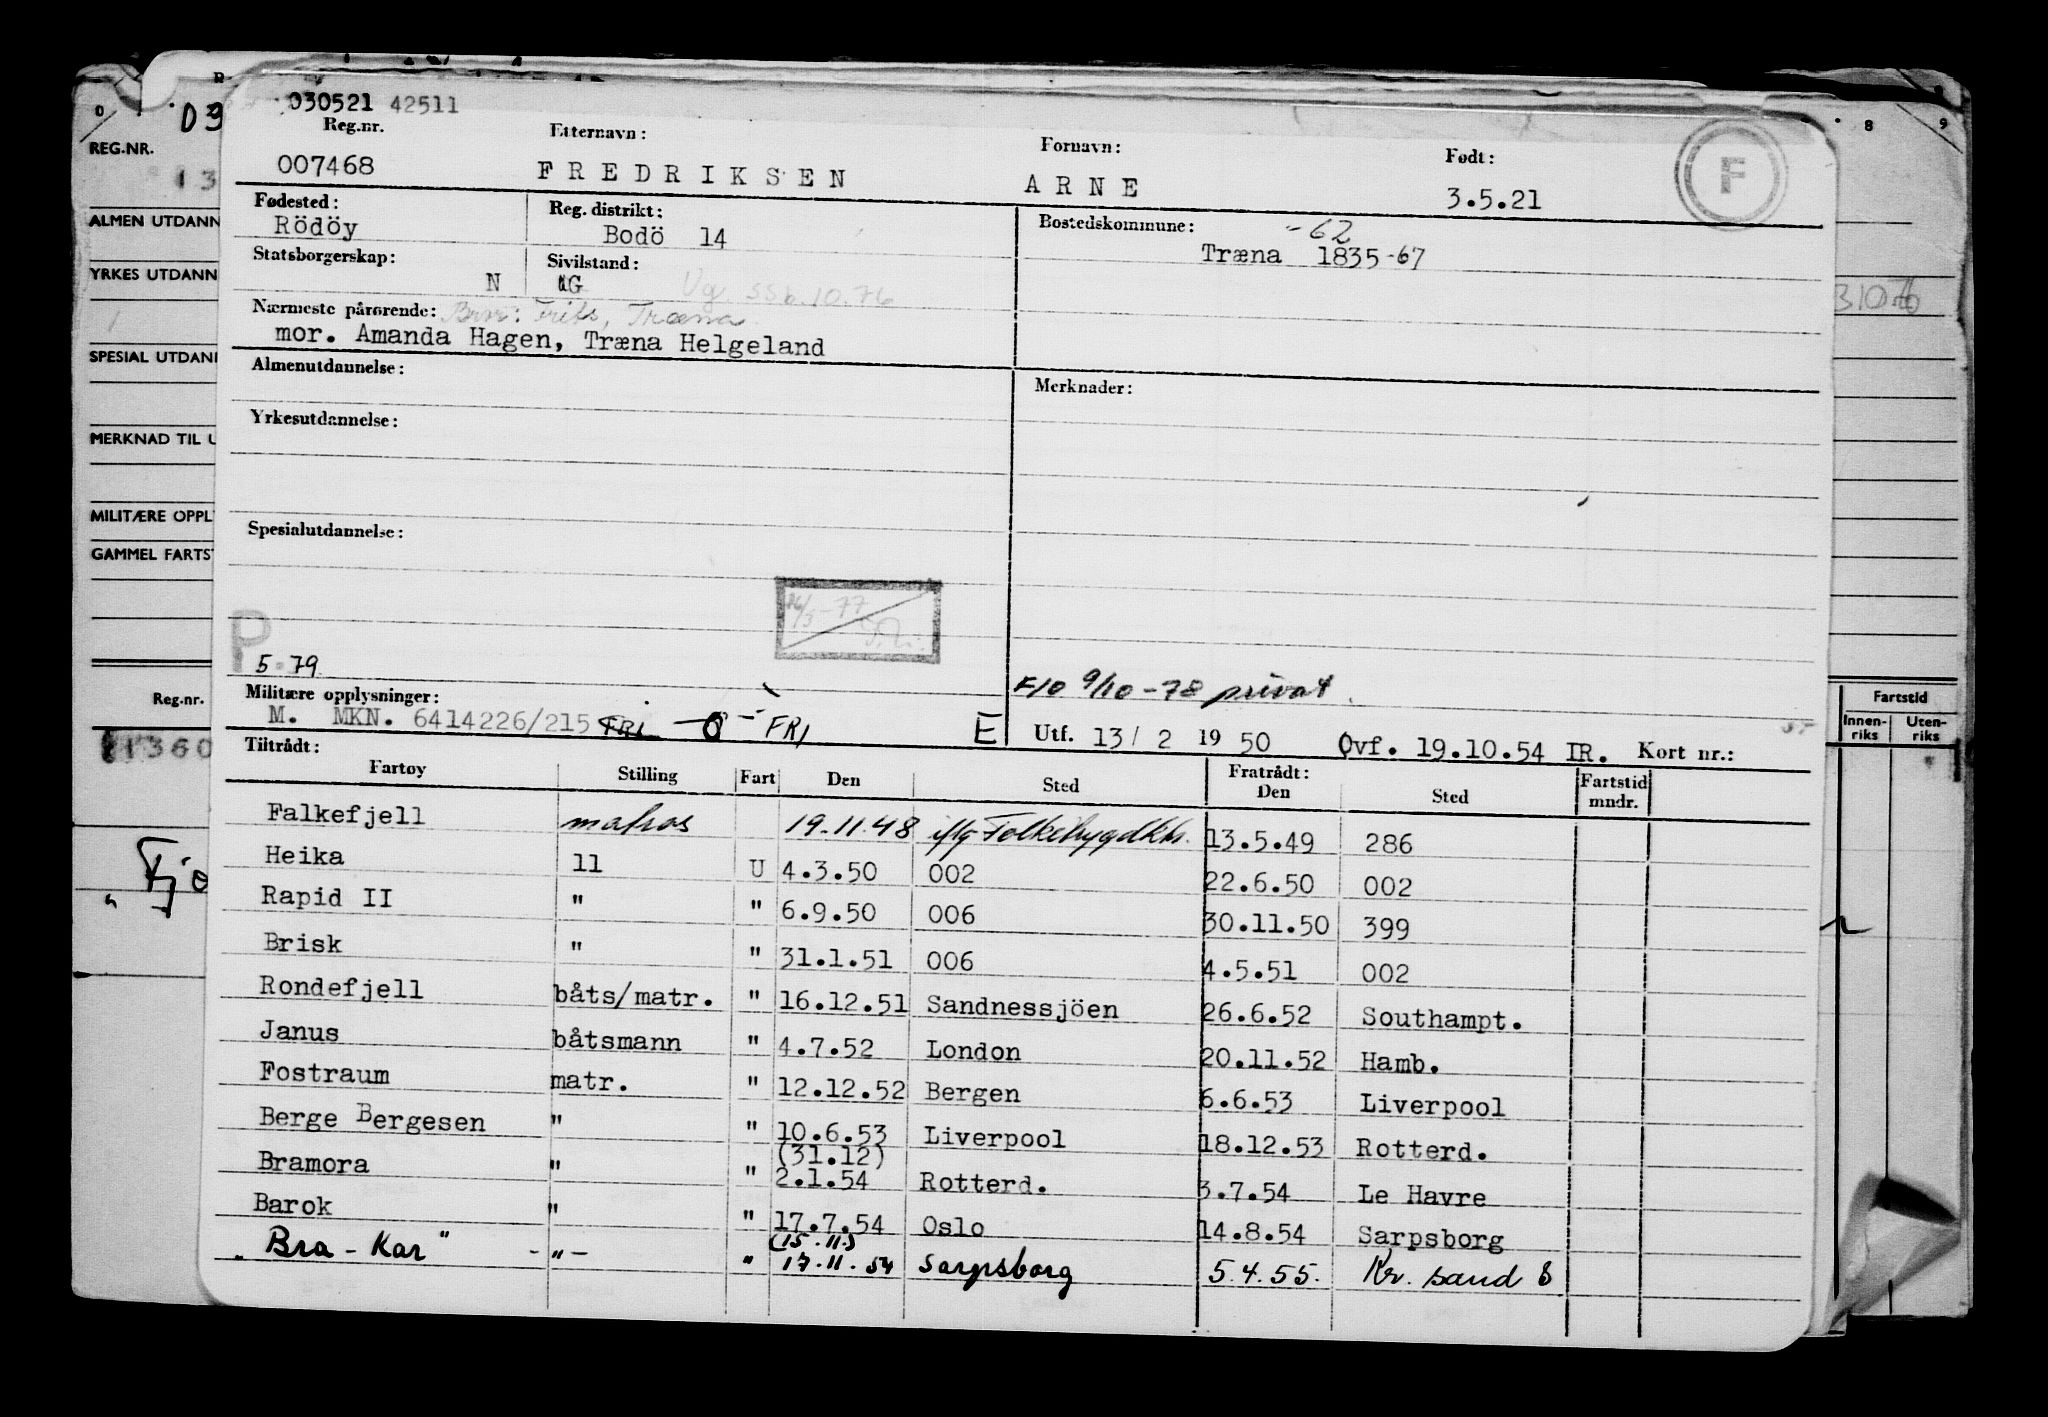 030521 42511
Reg.nr. Etternavn: Fornavn: Født:
007468 FREDRIKSEN ARNE 3.5.21
F
Fødested: Reg. distrikt: Bostedskommune: -62
Rödöy Bodö 14 Træna 1835-67
Statsborgerskap: Sivilstand:
N UG Ug. SSb.10.76
Nærmeste pårørende: Bror: Frits, Træna
mor. Amanda Hagen, Træna Helgeland
Almenutdannelse: Merknader:
Yrkesutdannelse:
Spesialutdannelse:
26/3-77
P.
5.79
F10 9/10-78 privat.
Militære opplysninger:
M. MKN. 6414226/215 FRI -0- FRI E Utf. 13/ 2 19 50 Ovf. 19.10.54 IR. Kort nr.:
Tiltrådt: Fratrådt:
Fartøy Stilling Fart Den Sted Den Sted Fartstid mndr.
Falkefjell matros 19.11.48 iflg Folketrygdktr. 13.5.49 286
Heika 11 U 4.3.50 002 22.6.50 002
Rapid II " " 6.9.50 006 30.11.50 399
Brisk " " 31.1.51 006 4.5.51 002
Rondefjell båts/matr. " 16.12.51 Sandnessjöen 26.6.52 Southampt.
Janus båtsmann " 4.7.52 London 20.11.52 Hamb.
Fostraum matr. " 12.12.52 Bergen 6.6.53 Liverpool
Berge Bergesen " " 10.6.53 Liverpool 18.12.53 Rotterd.
(31.12)
Bramora " " 2.1.54 Rotterd. 3.7.54 Le Havre
Barok " " 17.7.54 Oslo 14.8.54 Sarpsborg
(15.11.)
"Bra-Kar" -"- " 17.11.54 Sarpsborg 5.4.55. Kr. sand S
REG.NR.
13
ALMEN UTDANN
YRKES UTDANN
SPESIAL UTDAN
MERKNAD TIL U
MILITÆRE OPPL
GAMMEL FARTS
Reg.nr.
1360
8 9
31076
Fartstid
Innen-riks Uten-riks